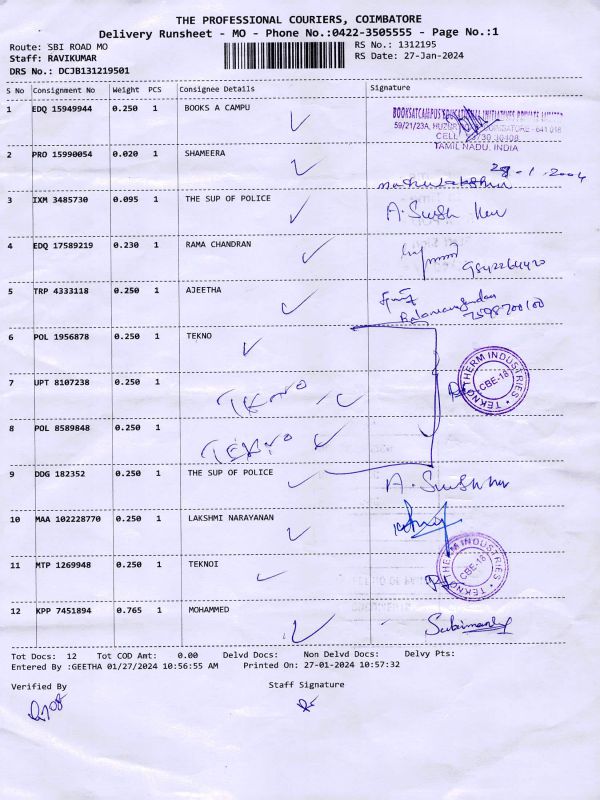 THE PROFESSIONAL COURIERS, COIMBATORE
Delivery Runsheet - MO - Phone No.:0422-3505555 - Page No.:1
Route: SBI ROAD MO
RS No.: 1312195
Staff: RAVIKUMAR
RS Date: 27-Jan-2024
DRS No.: DCJB131219501
S No Consignment No Weight PCS Consignee Details Signature
1 EDQ 15949944 0.250 1 BOOKS A CAMPU
59/21/23A, COIMBATORE - 641 018
CELL
TAMIL NADU, INDIA
2 PRO 15990054 0.020 1 SHAMEERA
3 IXM 3485730 0.095 1 THE SUP OF POLICE
4 EDQ 17589219 0.230 1 RAMA CHANDRAN
5 TRP 4333118 0.250 1 AJEETHA
7598700100
6 POL 1956878 0.250 1 TEKNO
TEKNO THERM INDUSTRIES CBE-18
7 UPT 8107238 0.250 1 TEKNO
8 POL 8589848 0.250 1 TEKNO
9 DDG 182352 0.250 1 THE SUP OF POLICE
10 MAA 102228770 0.250 1 LAKSHMI NARAYANAN
11 MTP 1269948 0.250 1 TEKNOI
TEKNO THERM INDUSTRIES CBE-18
12 KPP 7451894 0.765 1 MOHAMMED
Tot Docs: 12 Tot COD Amt: 0.00 Delvd Docs: Non Delvd Docs: Delvy Pts:
Entered By :GEETHA 01/27/2024 10:56:55 AM Printed On: 27-01-2024 10:57:32
Verified By Staff Signature